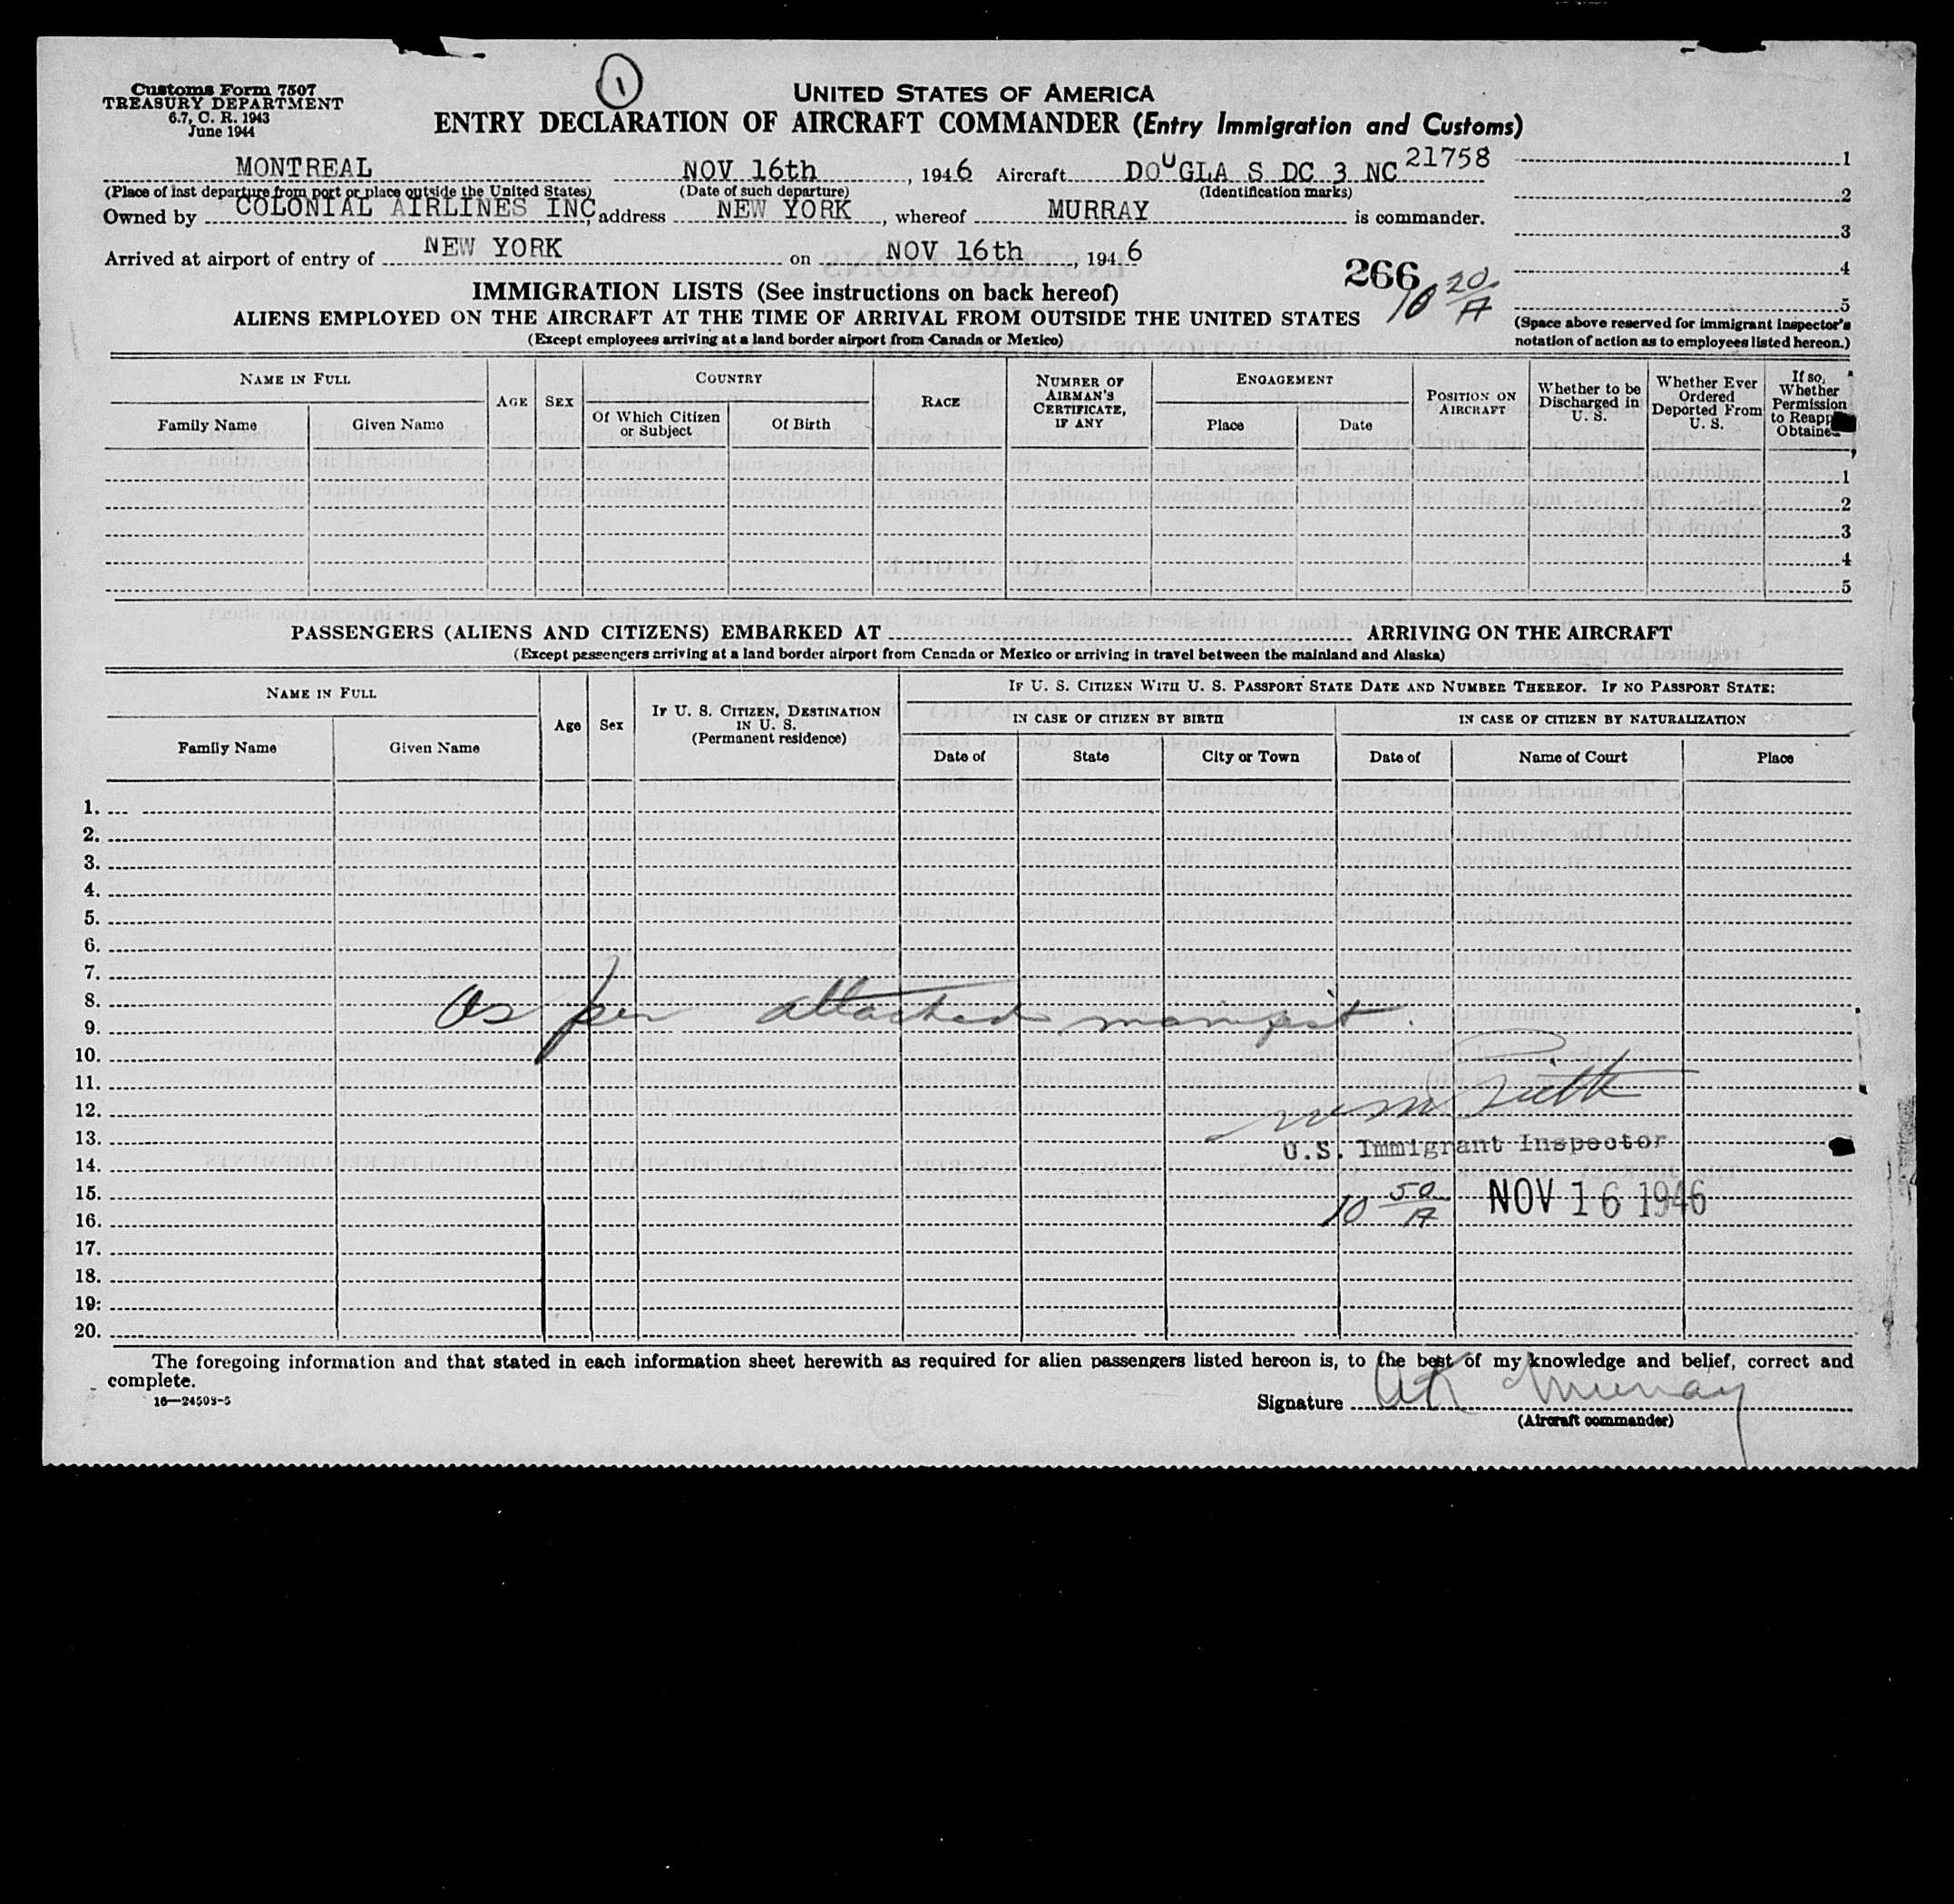 Customs Form 7507
TREASURY DEPARTMENT
6.7, C. R. 1943
June 1944
1
UNITED STATES OF AMERICA
ENTRY DECLARATION OF AIRCRAFT COMMANDER (Entry Immigration and Customs)
MONTREAL NOV 16th, 1946 Aircraft DOUGLA S DC 3 NC 21758
(Place of last departure from port or place outside the United States) (Date of such departure) (Identification marks)
Owned by COLONIAL AIRLINES INC, address NEW YORK, whereof MURRAY is commander.
Arrived at airport of entry of NEW YORK on NOV 16th, 1946
1
2
3
4
5
(Space above reserved for immigrant inspector's
notation of action as to employees listed hereon.)
266 10 20/A
IMMIGRATION LISTS (See instructions on back hereof)
ALIENS EMPLOYED ON THE AIRCRAFT AT THE TIME OF ARRIVAL FROM OUTSIDE THE UNITED STATES
(Except employees arriving at a land border airport from Canada or Mexico)
NAME IN FULL
Family Name
Given Name
AGE
SEX
COUNTRY
Of Which Citizen
or Subject
Of Birth
RACE
NUMBER OF
AIRMAN'S
CERTIFICATE,
IF ANY
ENGAGEMENT
Place
Date
POSITION ON
AIRCRAFT
Whether to be
Discharged in
U. S.
Whether Ever
Ordered
Deported From
U. S.
If so,
Whether
Permission
to Reapp
Obtained
1
2
3
4
5
PASSENGERS (ALIENS AND CITIZENS) EMBARKED AT ARRIVING ON THE AIRCRAFT
(Except passengers arriving at a land border airport from Canada or Mexico or arriving in travel between the mainland and Alaska)
NAME IN FULL
Family Name
Given Name
Age
Sex
IF U. S. CITIZEN, DESTINATION
IN U. S.
(Permanent residence)
IF U. S. CITIZEN WITH U. S. PASSPORT STATE DATE AND NUMBER THEREOF. IF NO PASSPORT STATE:
IN CASE OF CITIZEN BY BIRTH
IN CASE OF CITIZEN BY NATURALIZATION
Date of
State
City or Town
Date of
Name of Court
Place
1.
2.
3.
4.
5.
6.
7.
8.
As per attached manifest.
9.
10.
11.
12.
13.
U.S. Immigrant Inspector
14.
15.
10 50/A NOV 16 1946
16.
17.
18.
19.
20.
The foregoing information and that stated in each information sheet herewith as required for alien passengers listed hereon is, to the best of my knowledge and belief, correct and
complete.
16—24598-5
Signature AR Murray
(Aircraft commander)